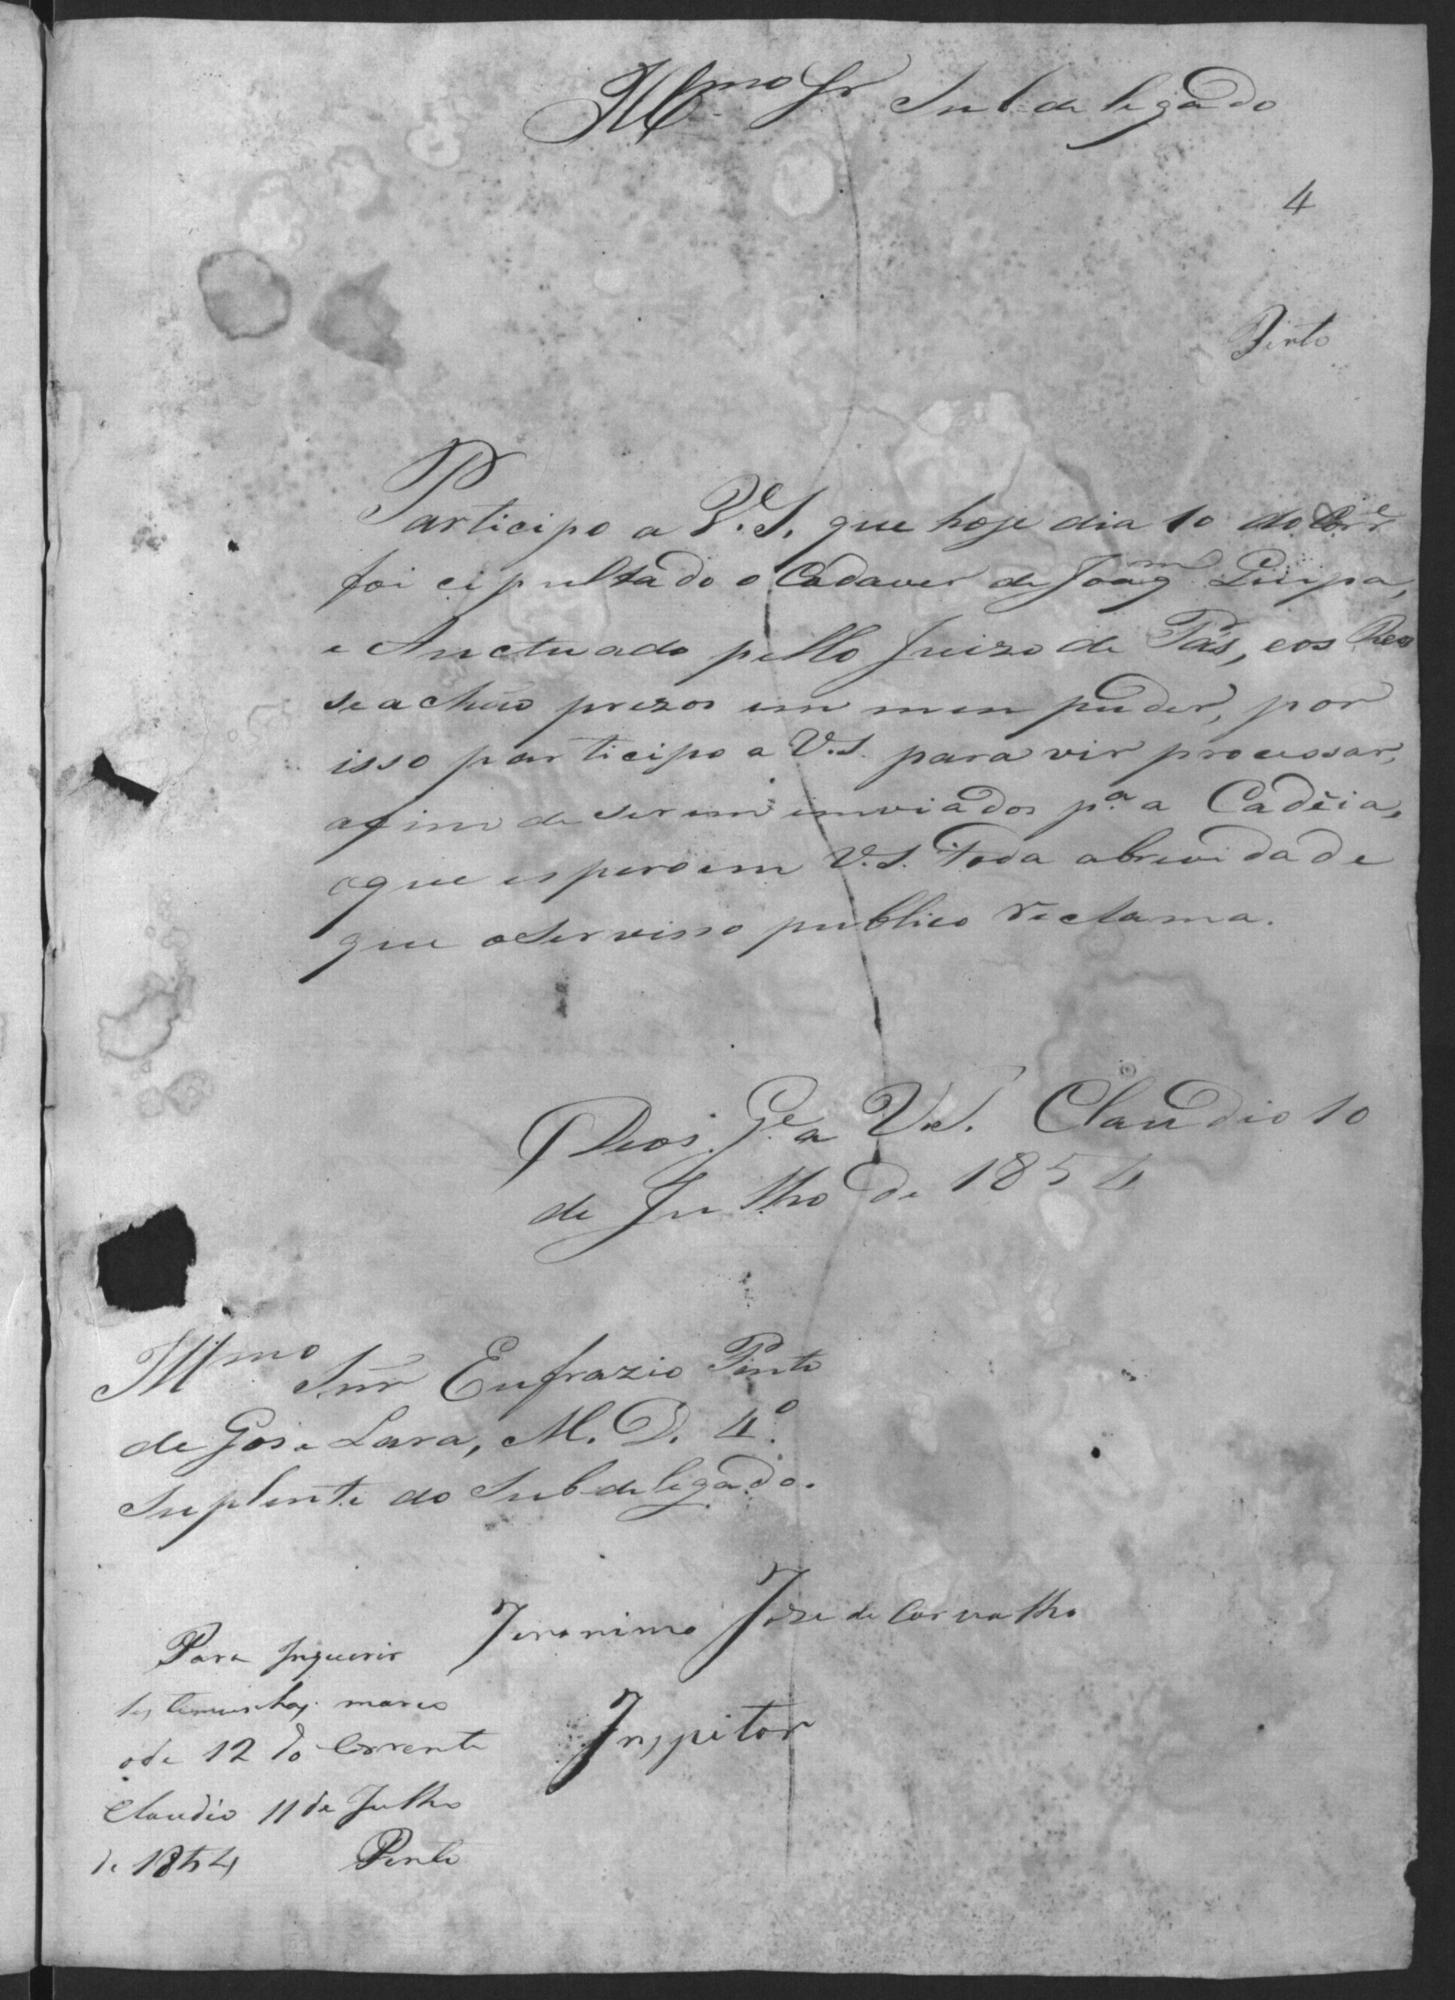 Illmo Sr Subdeligado
4
Pinto
Participo a V.S. que hoje dia 10 do Corre
foi cipultado o Cadaver de Joaqm
e Auctuado pello Juizo de Pás, eos Reos
seachão prezos em meu puder, por
isso participo a V.S. para vir processar,
afim de serem inviados pa. a Cadêia,
oque espero em V.S. toda abrividade
que o Servisso publico reclama.
Deos Ge. a V.S. Claudio 10
de Julho de 1854
Illmo Snr Eufrazio Pinto
de Gos e Lara, M. D. 4o.
Suplente do Subdeligado.
Jeronimo Joze de Carvalho
Inspitor
Para Inquerir
testemunhas marco
o de 12 do Corrente
Claudio 11 de Julho
de 1854 Pinto